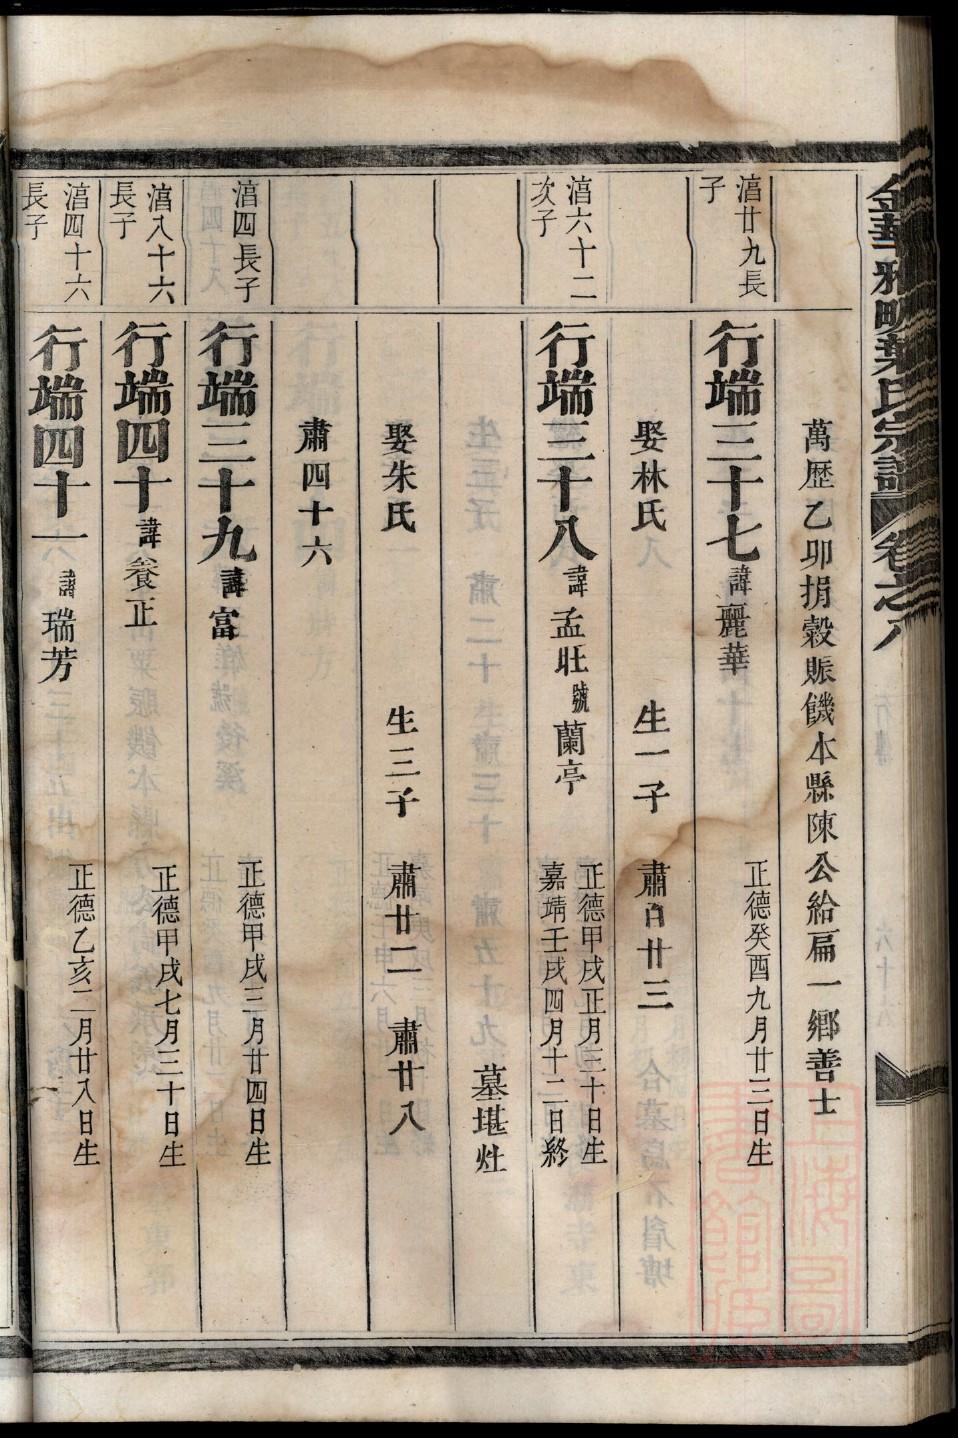 金華雅畈葉氏宗譜 卷之八
萬歷乙卯捐穀賑饑本縣陳公給扁一鄉善士
湻廿九長子
行端三十七 諱麗華 正德癸酉九月廿三日生
娶林氏 生一子 肅百廿三
湻六十二次子
行端三十八 諱孟旺號蘭亭 正德甲戌正月三十日生
嘉靖壬戌四月十二日終
墓堪灶
娶朱氏 生三子 肅廿二 肅廿八
肅四十六
湻四長子
行端三十九 諱富 正德甲戌三月廿四日生
湻八十六長子
行端四十 諱養正 正德甲戌七月三十日生
湻四十六長子
行端四十一 諱瑞芳 正德乙亥二月廿八日生
上海圖書館藏